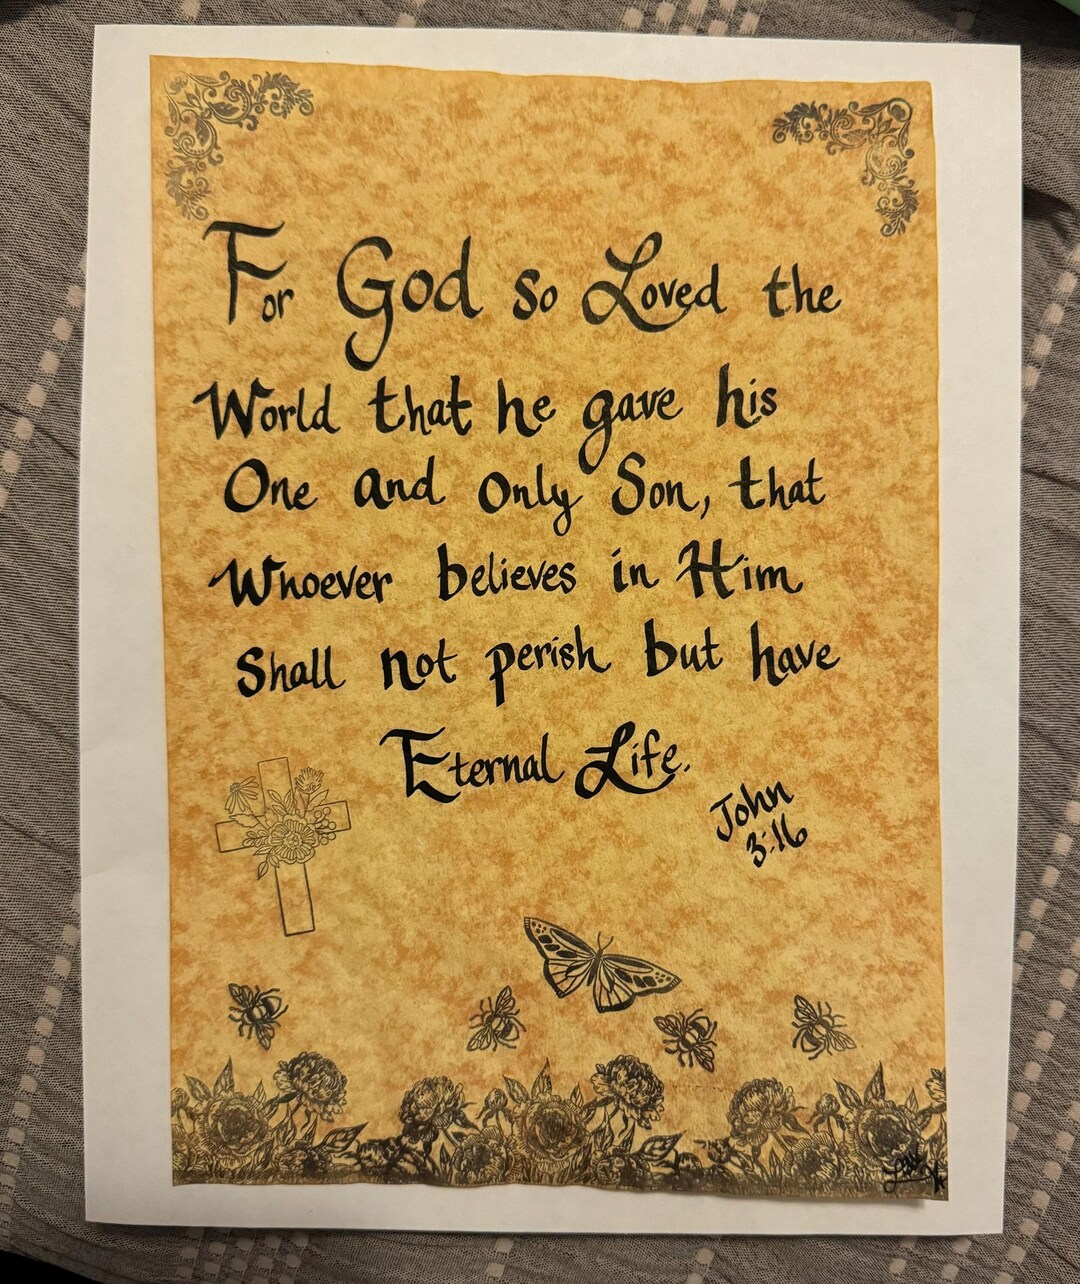 For God so Loved the
World that he gave his
One and only Son, that
Whoever believes in Him
Shall not perish but have
Eternal Life.
John
3:16